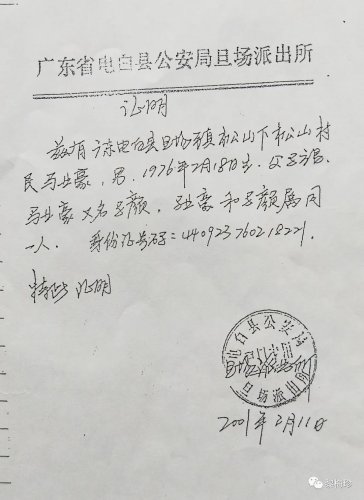 广东省电白县公安局旦场派出所
证明
兹有广东电白县旦场镇松山下松山村
民马业豪，男，1976年2月18日出
马业豪又名 业豪和 属同
一人． 身份证号码：440923760218221
特此证明
电白县公安局
旦场派出所
2001年2月11日